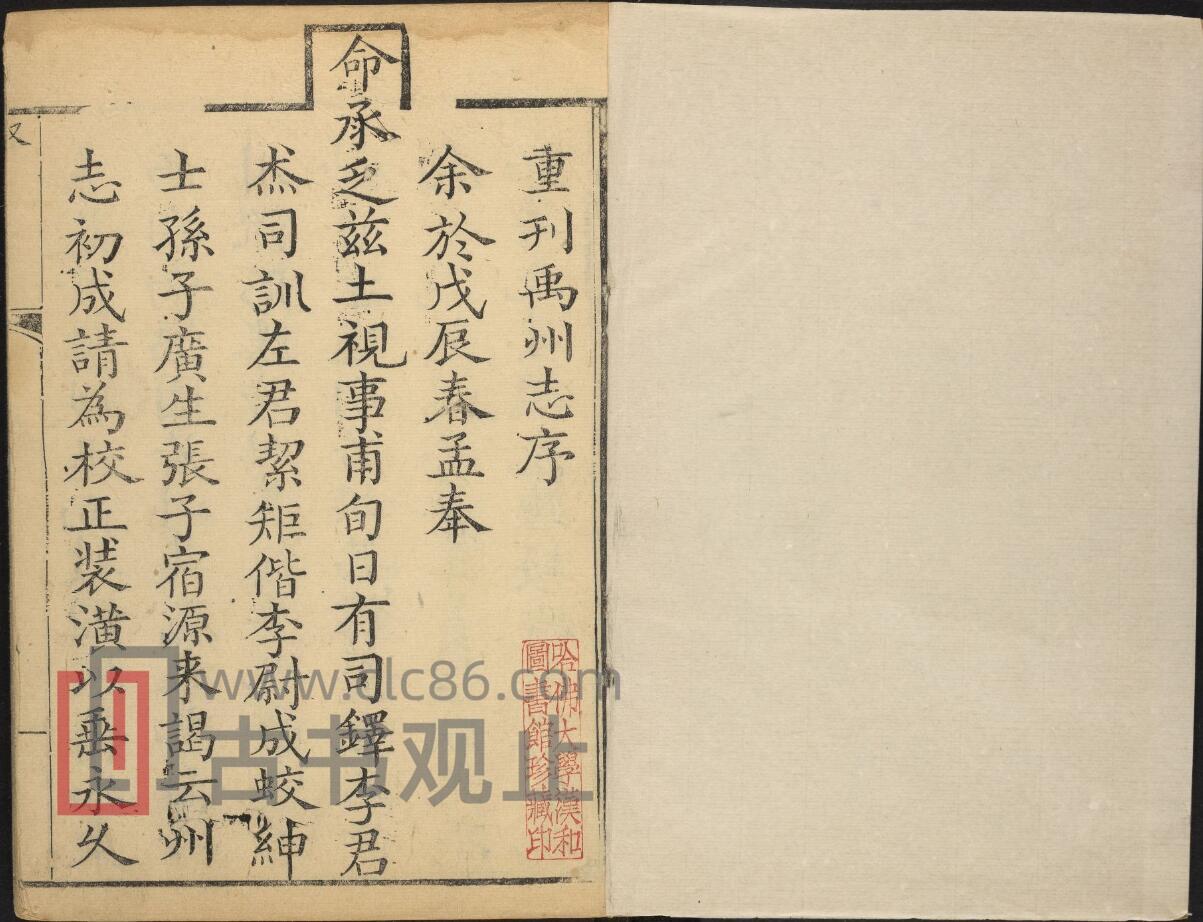 重刊禹州志序
余於戊辰春孟奉
命承乏兹土視事甫旬日有司鐸李君
杰司訓左君絜矩偕李尉成蛟紳
士孫子廣生張子宿源来謁云州
志初成請為校正装潢以垂永久
哈佛大學漢和
圖書館珍藏印
www.clc86.com
古书观止